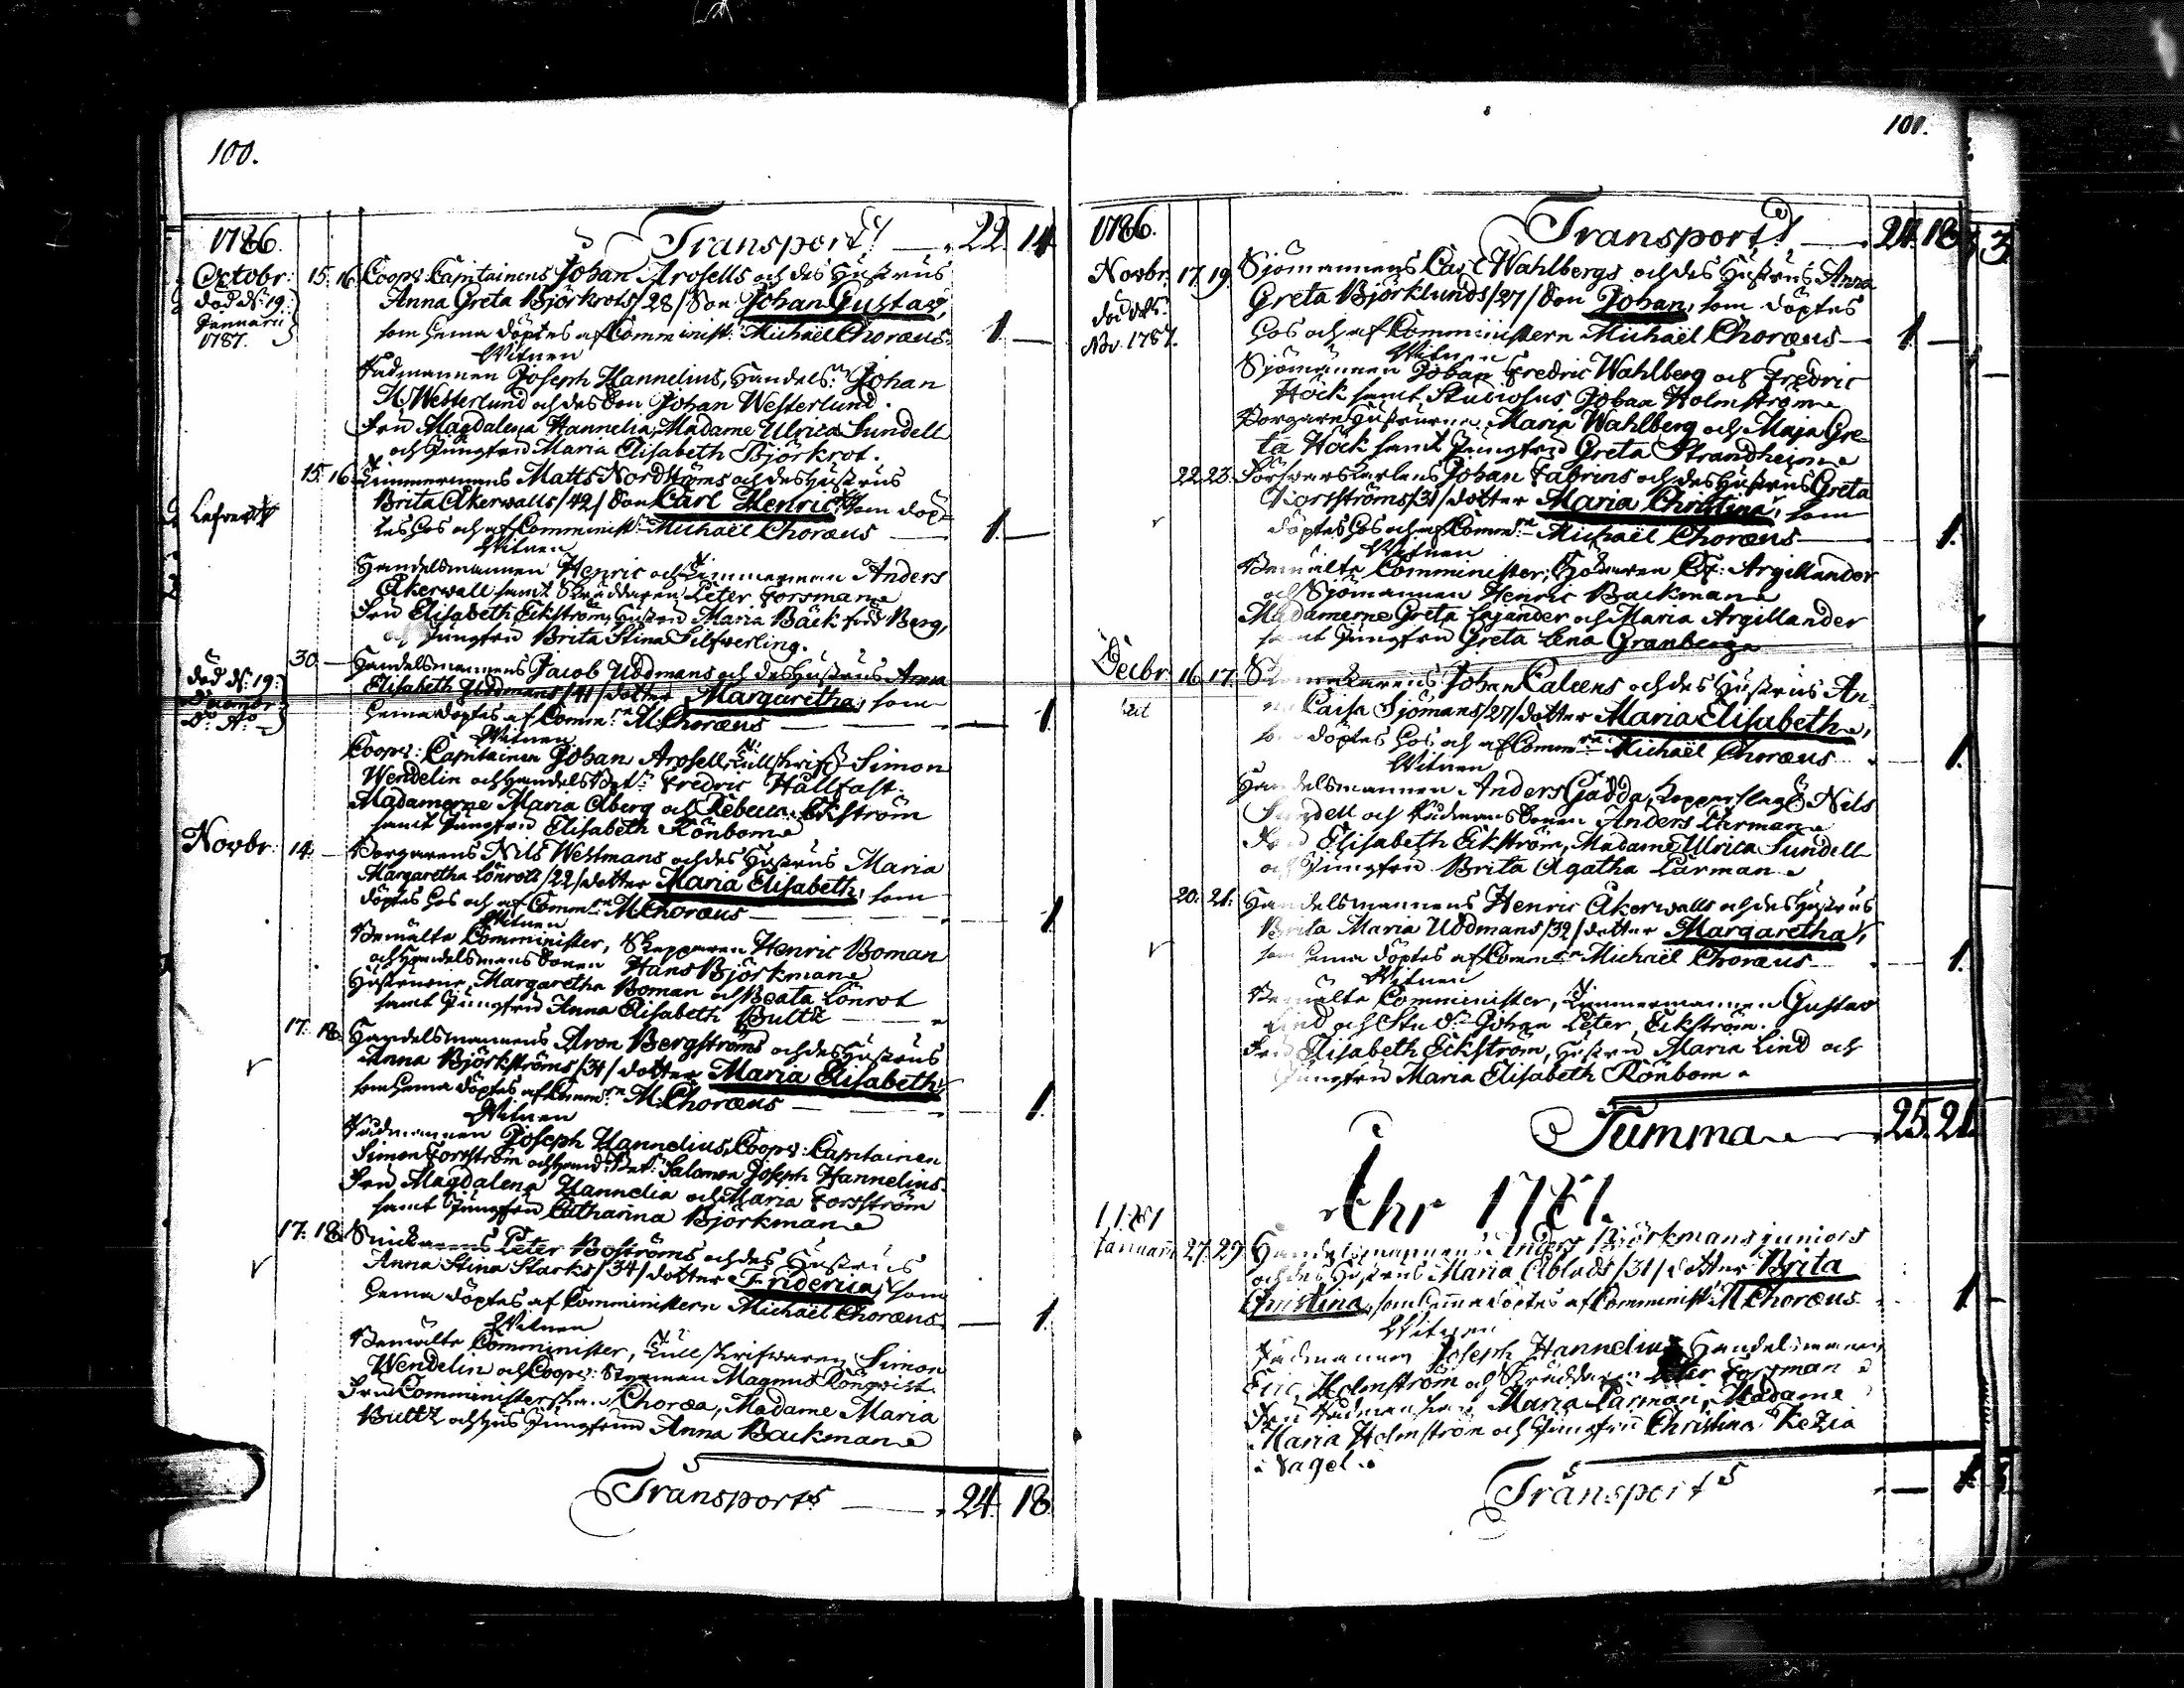 100.
1786.
Transport 22 14
Octobr: 15. 16. Coopv: Capitainens Johan Arosells och des Hustrus
död d: 19.
Januarii
1787.
Anna Greta Björkrots /28/ Son Johan Gustav,
som hema döptes af Comminist: Michaël Choræus. 1 —
Witnen
Rådmannen Joseph Hannelius, Handels: Johan
H. Westerlund och des Son Johan Westerlund.
Fru Magdalena Hannelia, Madame Ulrica Sundell
och Jungfru Maria Elisabeth Björkrot.
15. 16. Timmermans Matts Nordströms och des Hustrus
Brita Åkerwalls /42/ Son Carl Henric, som döp-
tes hos och af Comminist: Michaël Choræus — 1. —
Witnen
Handelsmannen Henric och Timmerman Anders
Åkerwall samt Skräddaren Peter Forsman
Fru Elisabeth Eckström, Hustru Maria Bäck född Berg,
och Jungfru Brita Stina Silfverling.
30. — Handelsmannens Jacob Uddmans och des Hustrus Anna
död d: 19:
Elisabeth Uddmans /41/ dotter Margaretha, som
hema döptes af Comm:rn M. Choræus — — 1.
Witnen
Coopv: Capitainen Johan Arosell, Tullskrif: Simon
Wendelin och Handels Bet: Fredric Hällfast.
Madamerne Maria Åberg och Rebecca Eckström
samt Jungfru Elisabeth Rönbom
Novbr: 14. — Borgarens Nils Westmans och des Hustrus Maria
Margaretha Lönrots /22/ dotter Maria Elisabeth, som
döptes hos och af Comm:rn M. Choræus — 1
Witnen
Bemälte Comminister, Skepparen Henric Boman
och Handelsmans Sonen Hans Björkman
Hustrurne Margaretha Boman och Beata Lönrot
samt Jungfru Anna Elisabeth Bultz
17. 18. Handelsmannens Aron Bergströms och des Hustrus
Anna Björkströms /31/ dotter Maria Elisabeth,
som hema döptes af Comm:rn M: Choræus — 1.
Witnen
Rådmannen Joseph Hannelius, Coopv: Capitainen
Simon Forsström och Hand: Bet: Salomon Joseph Hannelius.
Fru Magdalena Hannelia och Maria Forsström
samt Jungfru Catharina Björkman
17. 18. Snickarens Peter Boströms och des Hustrus
Anna Stina Starks /34/ dotter Friderica, som
hema döptes af Comministern Michaël Choræus. — 1.
Witnen
Bemälte Comminister, Tullskrifvaren Simon
Wendelin och Coopv: Styrman Magnus Rönqvist.
Fru Comministerskan Choræa, Madame Maria
Bultz och Jungfrun Anna Backman
Transport 24. 18.
101.
1786.
Transport 24. 18
Novbr: 17. 19. Sjömannens Carl Wahlbergs och des Hustrus Anna
Nov. 1787.
Greta Björklunds /27/ Son Johan, som döptes
hos och af Comministern Michaël Choræus — 1 —
Witnen
Sjömännen Johan Fredric Wahlberg och Fredric
Höck samt Studiosus Johan Holmström
Borgare Hustrurne Maria Wahlberg och Maja Gre-
ta Höck samt Jungfru Greta Strandheim
22. 23. Försvarskarlens Johan Fabrins och des Hustrus Greta
Forsströms /31/ dotter Maria Christina, som
döptes hos och af Comm:rn Michaël Choræus — 1.
Witnen
Bemälte Comminister, Argillander
och Sjömannen Henric Backman
Madamerne Greta Cajander och Maria Argillander
samt Jungfru Greta Lena Granberg
Decbr 16. 17. Johan Caleens och des Hustrus An-
na Caisa Sjömans /27/ dotter Maria Elisabeth,
som döptes hos och af Comm:rn Michaël Choræus 1.
Witnen
Handelsmannen Anders Gädda, Kopparslag: Nils
Sundell och Rådmans Sonen Anders Carman
Fru Elisabeth Eckström, Madame Ulrica Sundell
och Jungfru Brita Agatha Carman
20. 21. Handelsmannens Henric Åkerwalls och des Hustrus
Brita Maria Uddmans /32/ dotter Margaretha,
som hema döptes af Comm:rn Michaël Choræus — 1.
Witnen
Bemälte Comminister, Timmermannen Gustav
Lind och Stud: Johan Peter Eckström.
Fru Elisabeth Eckström, Hustru Maria Lind och
Jungfru Maria Elisabeth Rönbom
Summa 25. 21.
Åhr 1787.
1787
Januarii 27. 29. Handelsmannens Anders Björkmans juniors
och des Hustrus Maria Ablads /31/ dotter Brita
Christina, som hema döptes af Comminist: M Choræus 1 —
Witnen
Rådmannen Joseph Hannelius, Handelsmannen
Eric Holmström och Skräddaren Peter Forsman
Fru Maria Carman, Madame
Maria Holmström och Jungfru Christina Kezia
Fagel
Transport — 1.